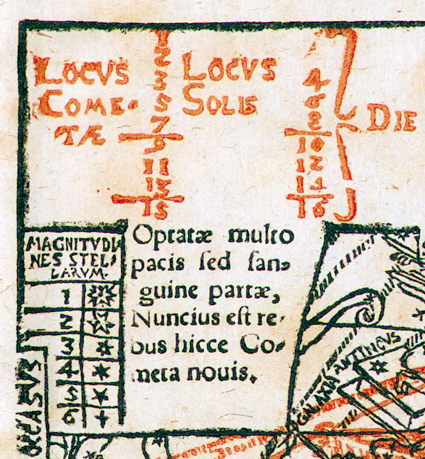 LOCVS
COME-
TÆ
1
2
3
5
7
9
11
13
15
LOCVS
SOLIS
4
6
8
10
12
14
16
DIE
MAGNITVDI
NES STEL-
LARVM.
1
2
3
4
5
6
Optatæ multo
pacis ſed ſan-
guine partæ,
Nuncius eſt re-
bus hicce Co-
meta nouis.
ANTINOVS